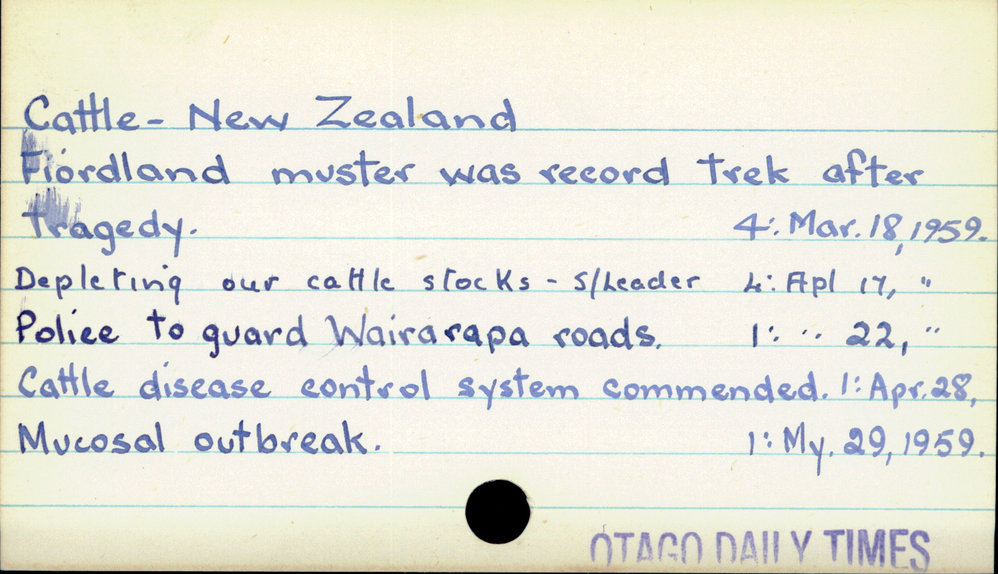 Cattle - New Zealand
Fiordland muster was record trek after
tragedy. 4: Mar. 18, 1959.
Depleting our cattle stocks - S/Leader 4: Apl 17, "
Police to guard Wairarapa roads. 1: " 22, "
Cattle disease control system commended. 1: Apr. 28,
Mucosal outbreak. 1: My. 29, 1959.
OTAGO DAILY TIMES